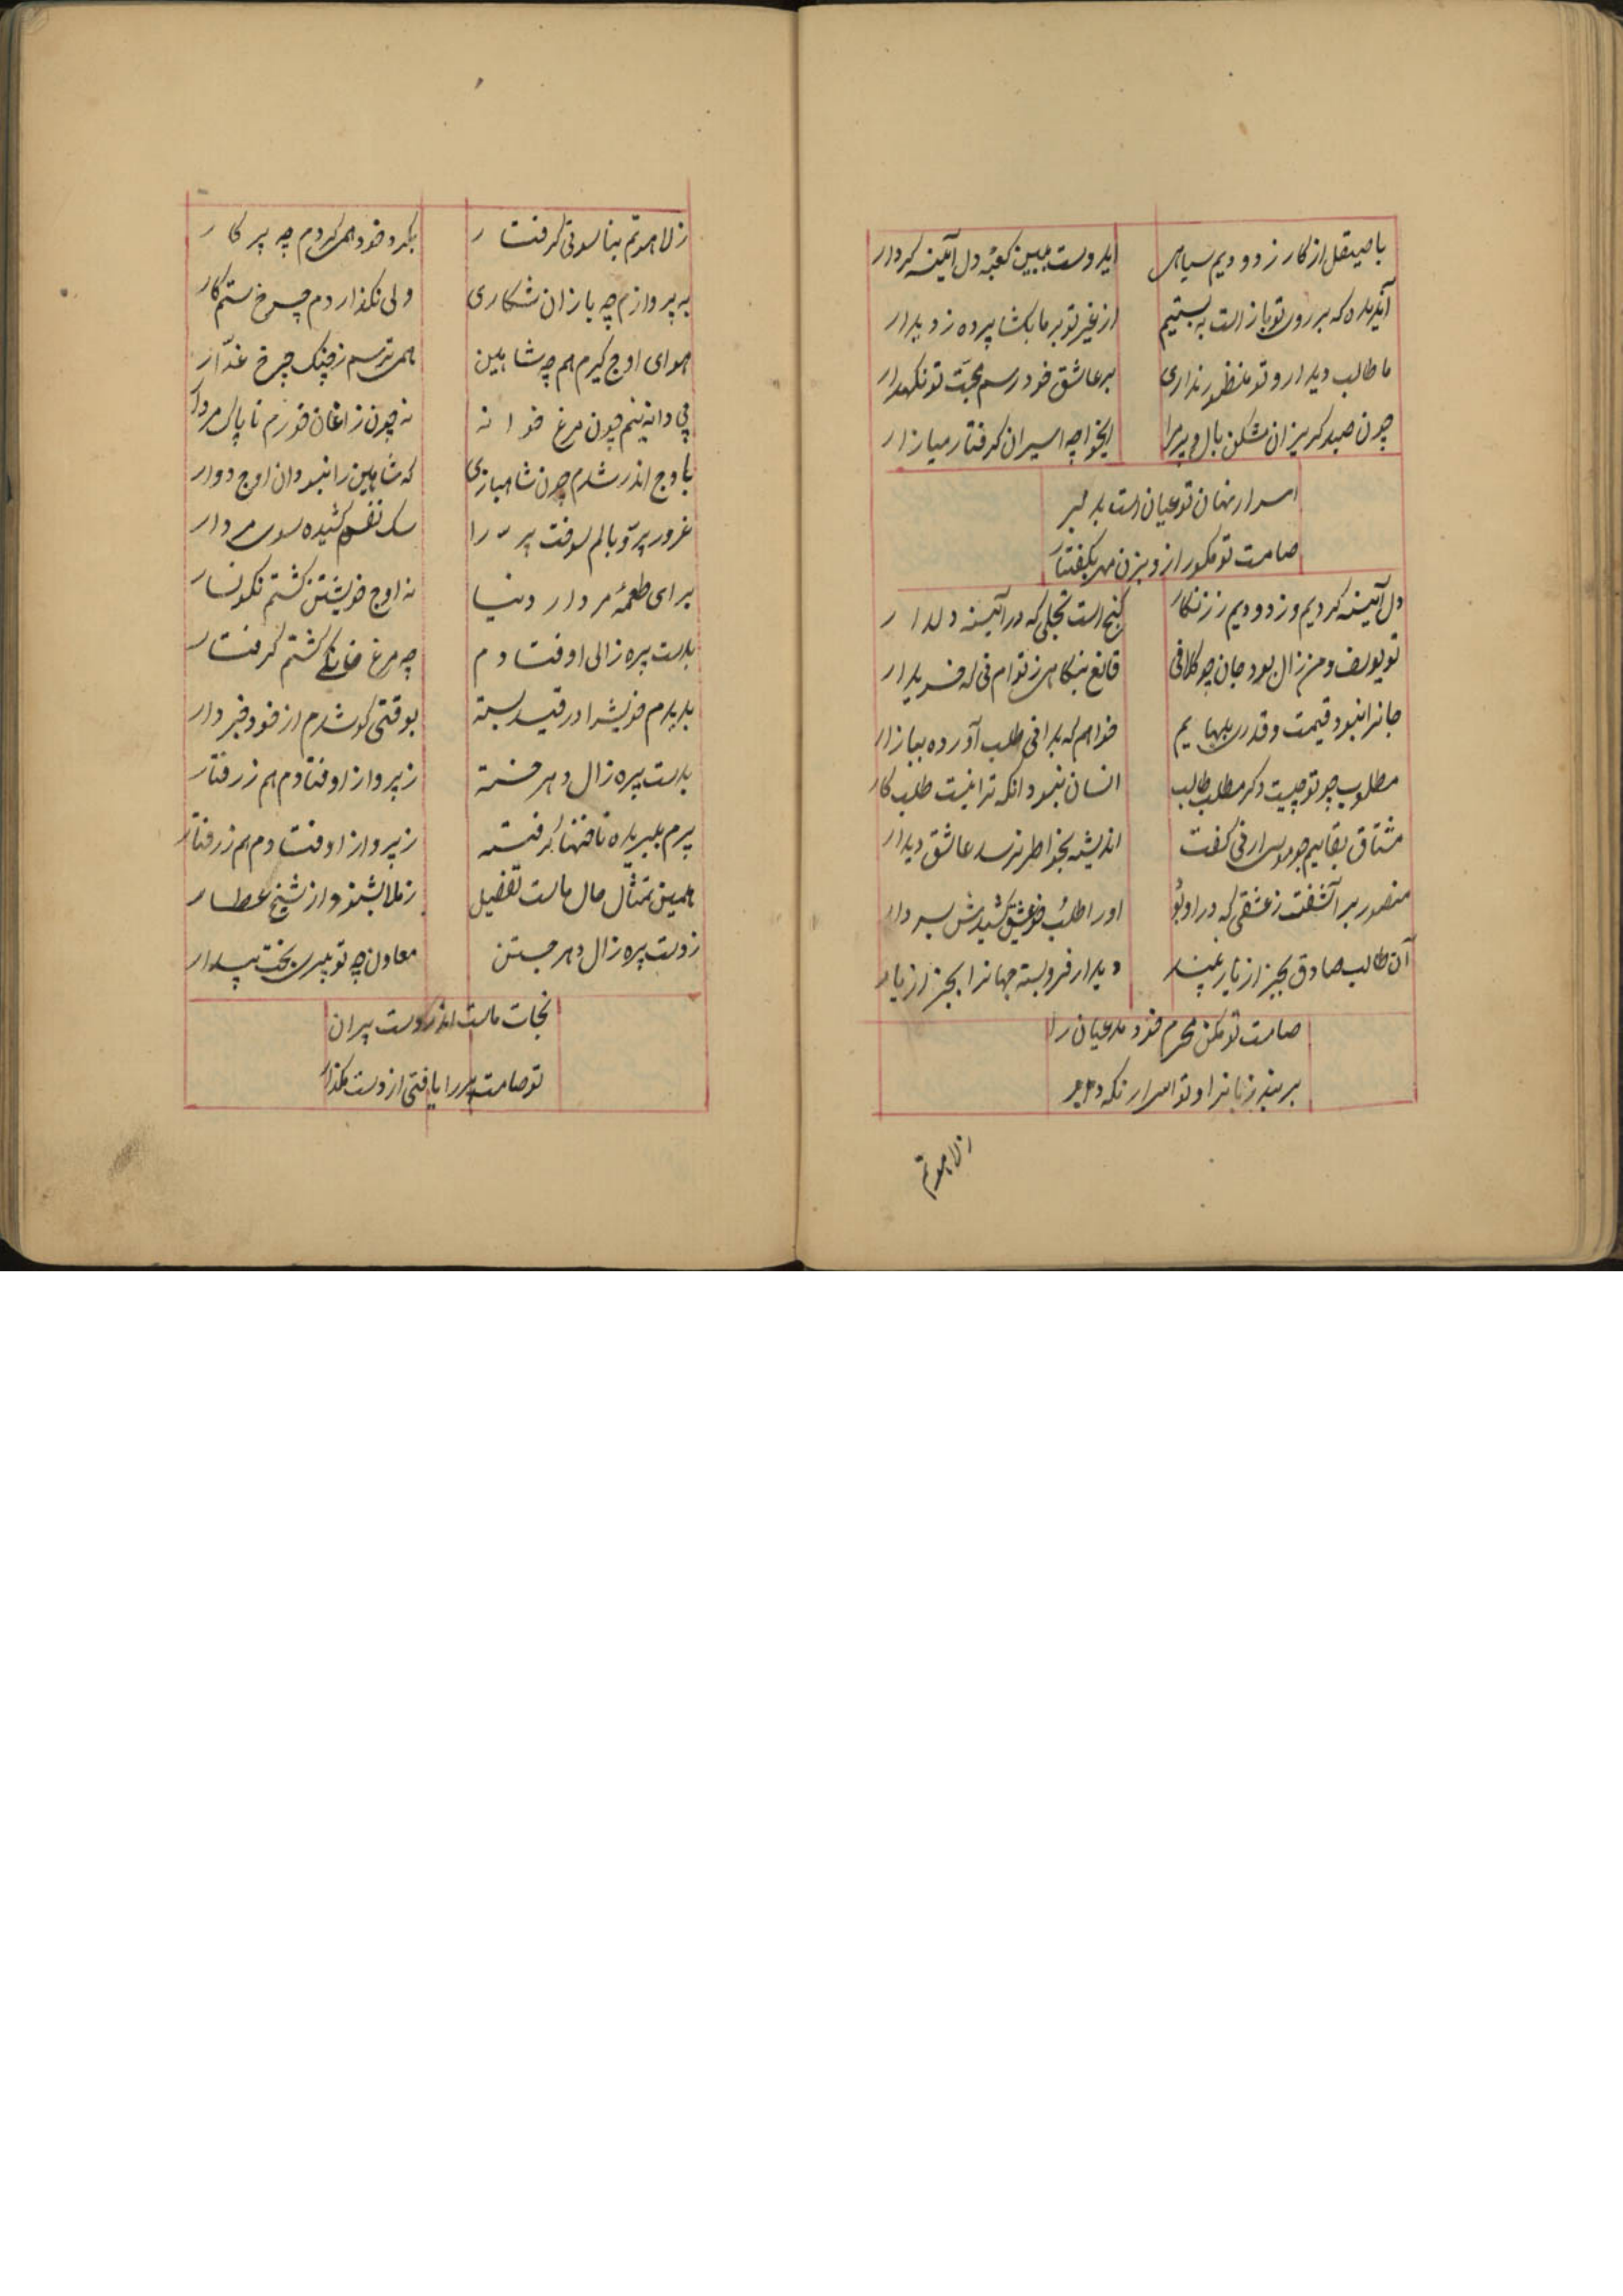 با صیقل از کار زدودیم سیاهی ایدوست ببین کعبهٔ دل آینه کردار
آندیده که بر روی تو باز است به بستیم از غیر تو بر ما بکشا پرده ز دیدار
ما طالب دیدار و تو منظور نداری بر عاشق خود رسم محبت تو نکهدار
چون صید کریزان مشکن بال و پر مرا ایخواجه اسیران کرفتار میازار
اسرار نهان تو عیان است بدلبر
صامت تو مکور از و بزن مهر بکفتار
دل آینه کردیم و زدودیم ز زنکار کنج است تجلی که در آینه دلدار
تو یوسف و من زال بود جان چو کلافی قانع بنکاهی ز توام نی که خریدار
جانرا نبود قیمت و قدری ببهایم خواهم که بدانی طلب آورده ببازار
مطلوب چو تو چیست دکر مطلب طالب انسان نبود آنکه ترا نیست طلب کار
مشتاق بقاییم چو موسی ارنی کفت اندیشه بخواطر نرسد عاشق دیدار
منصور بر آشفت ز عشقی که در او بود او را طلب عشق کشیدش بسر دار
آن طالب صادق بجز از یار نبیند دیدار فرو بسته جهانرا بجز از یار
صامت تو مکن محرم خود مدعیان را
بر بند زبانرا و تو اسرار نکه دار
زلاهوتم
زلاهوتم بناسوتی کرفتار بکرد خود همی کردم چه پرکار
به پروازم چه بازان شکاری ولی نکذاردم چرخ ستمکار
هوای اوج کیرم هم چه شاهین همی ترسم ز چنک چرخ غدّار
پی دانه نیم چون مرغ خوانه نه چون زاغان خورم ناپاک مردار
باوج اندر شدم چون شاهبازی که شاهین را نبود آن اوج دوار
غرور پر و بالم سوخت پر را سک نفسم کشیده سوی مردار
برای طعمهٔ مردار دنیا نه اوج خویشتن کشتم نکونسار
بدست پره زالی اوفتادم چه مرغ خانکی کشتم کرفتار
بدیدم خویشرا در قید بسته بوقتی کو شدم از خود خبردار
بدست پیره زال دهر خسته ز پرواز اوفتادم هم ز رفتار
پرم ببریده ناخنها کرفته ز پرواز اوفتادم هم ز رفتار
همین تمثال حال ماست تفضیل ز ملا بشنو و از شیخ عطار
ز دست پره زال دهر جستن معاون چه تو پیری بخت بیدار
نجات ماست اندر دست پیران
تو صامت پیر را یافتی از دست مکذار